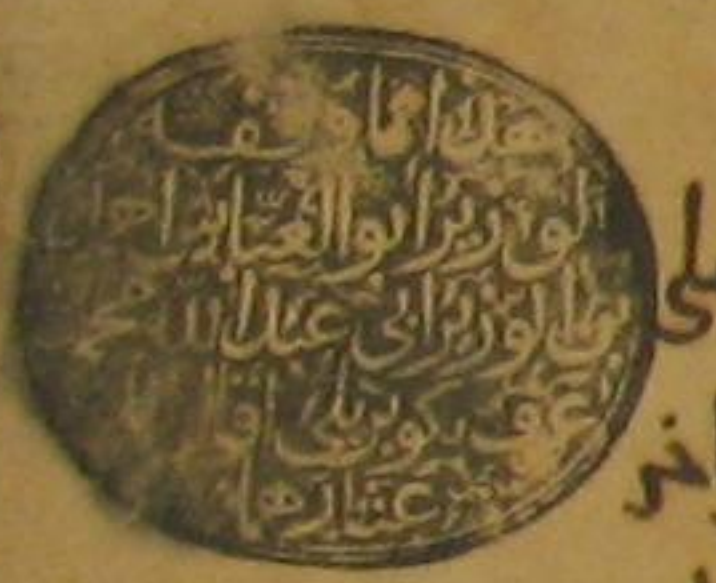 هذا مما وقفه
الوزير ابو العباس احمد
بن الوزير ابي عبد الله محمد
عرف بكوبريلي اقال الله
عثارهما
لى